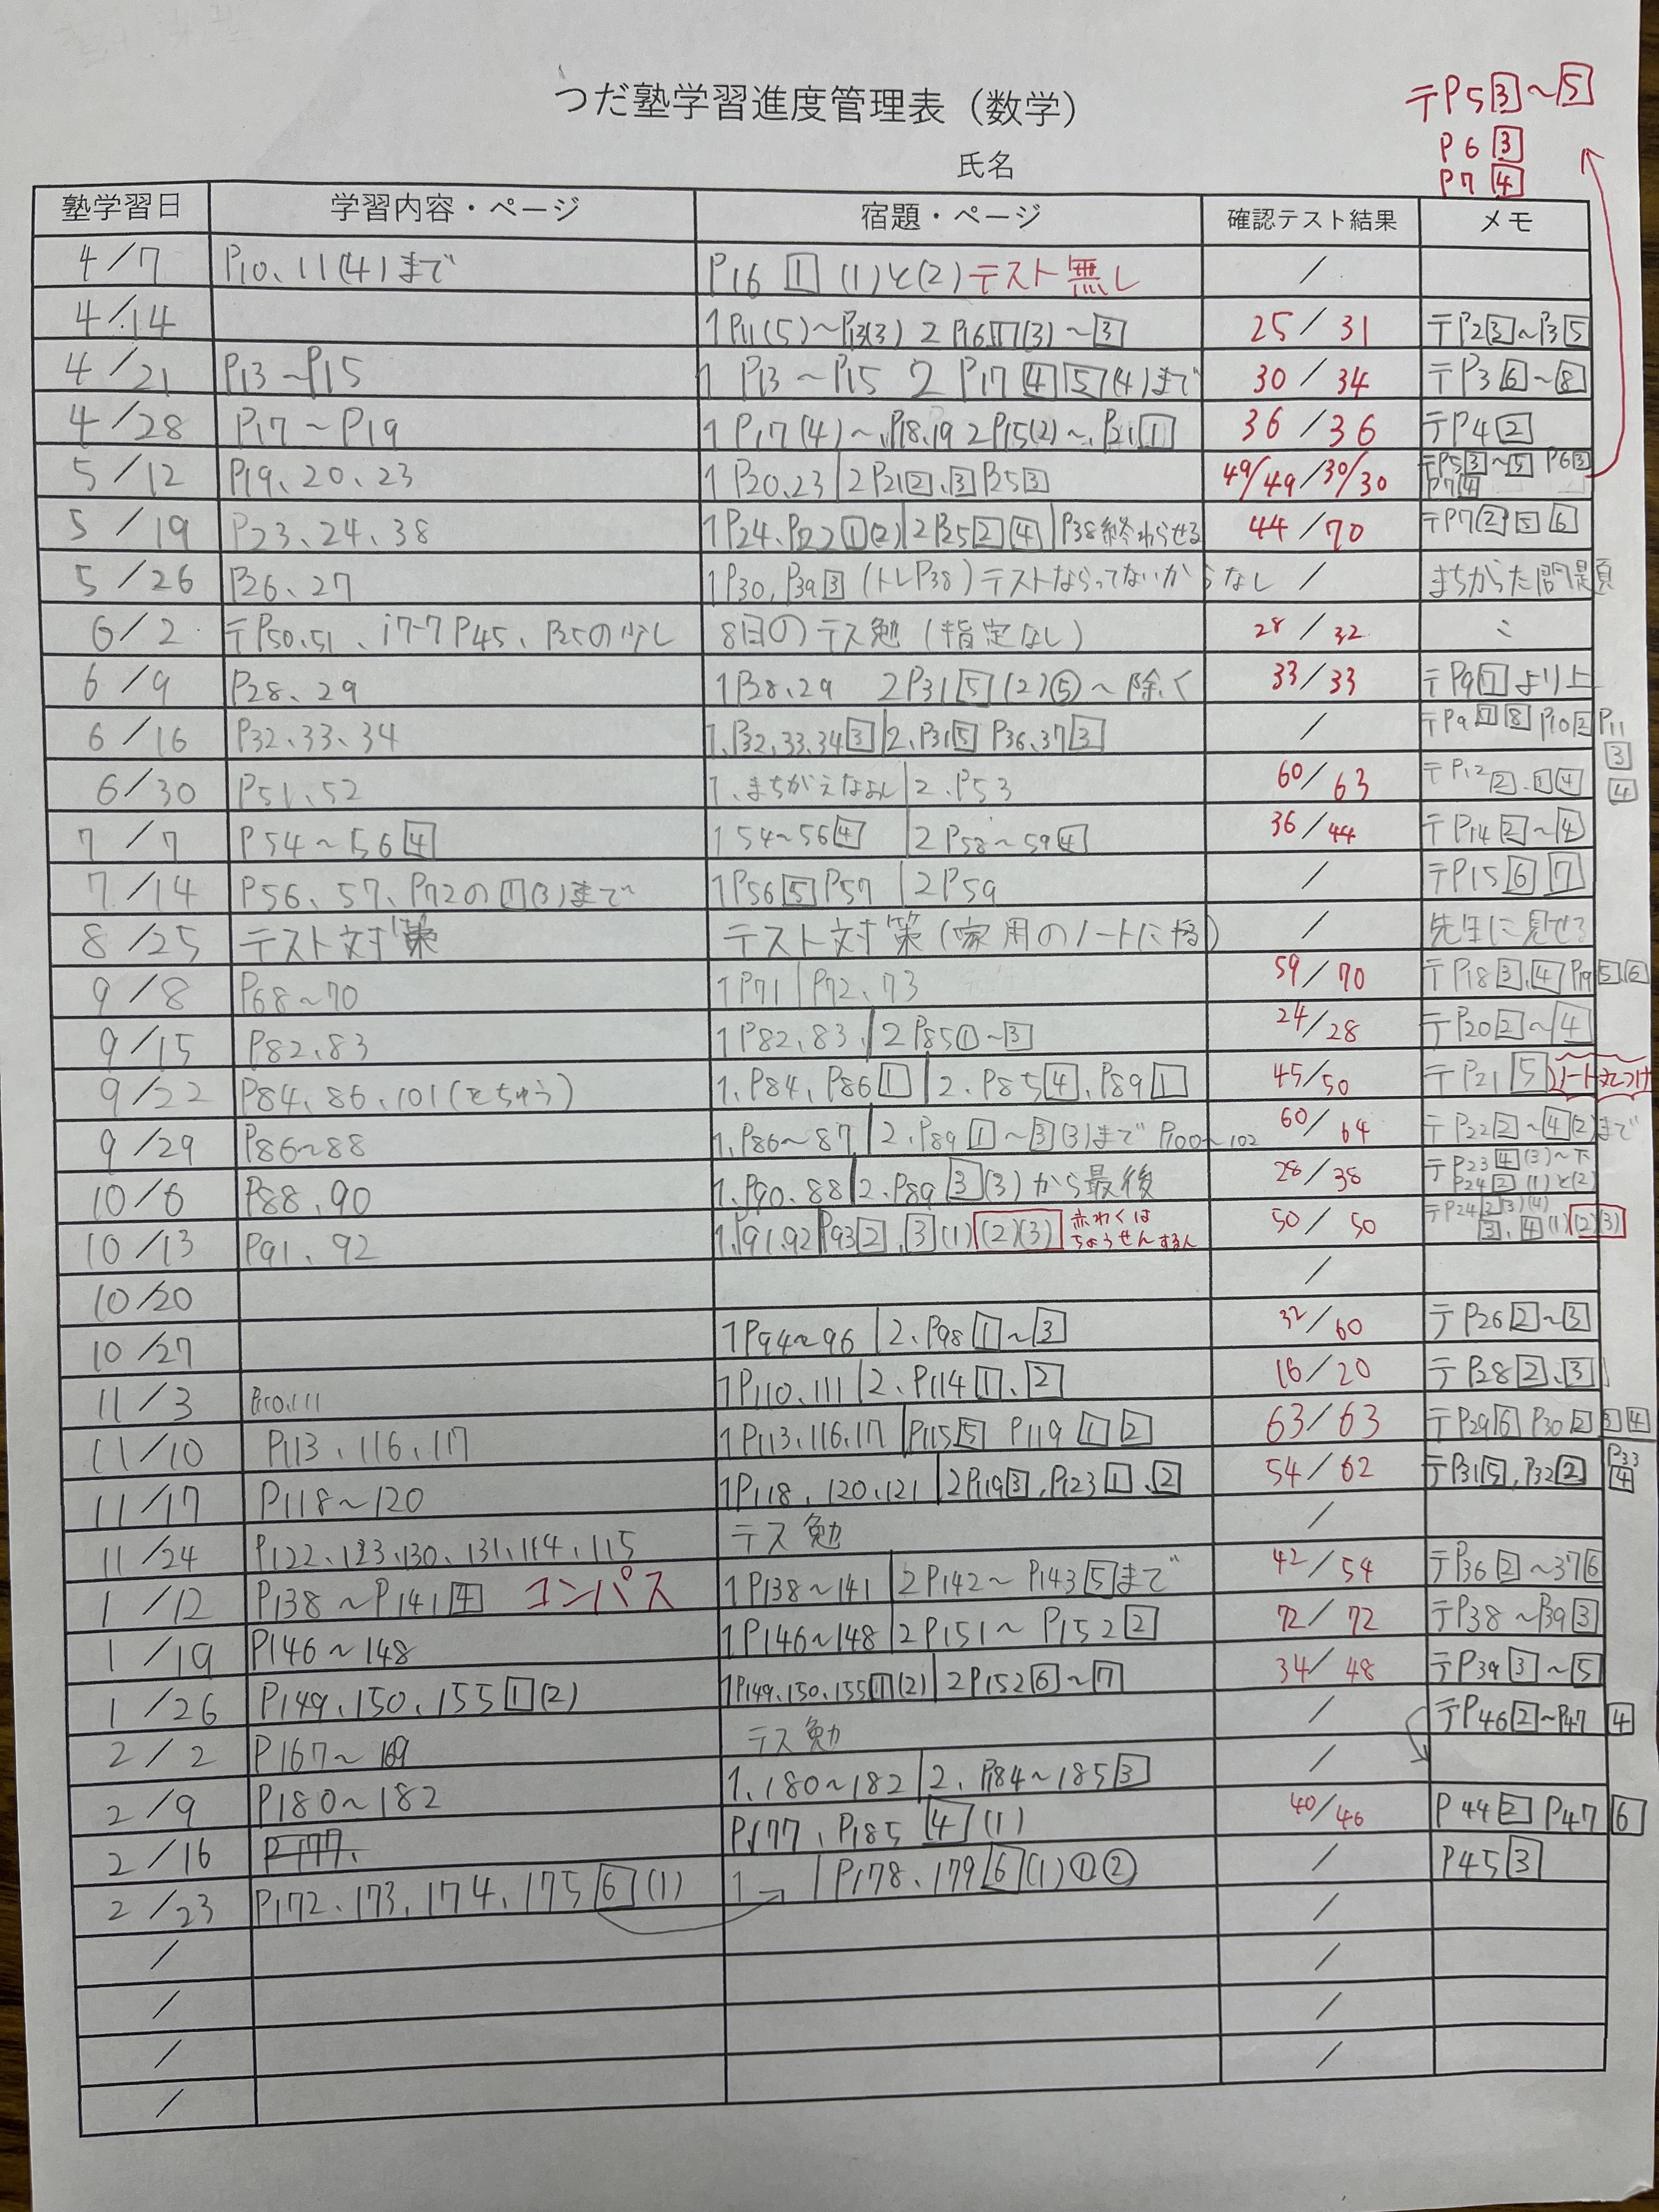 つだ塾学習進度管理表（数学）
テP5③〜⑤
P6③
P7④
氏名
塾学習日 学習内容・ページ 宿題・ページ 確認テスト結果 メモ
4/7 P10、11(4)まで P16①(1)と(2)テスト無し /
4/14 1P11(5)〜P13(3) 2P16①(3)〜③ 25/31 テP2②〜P3⑤
4/21 P13〜P15 1 P13〜P15 2 P17④⑤(4)まで 30/34 テP3⑥〜⑧
4/28 P17〜P19 1 P17(4)〜、P18、19 2P15(2)〜、P21① 36/36 テP4②
5/12 P19、20、23 1 P20、23|2P21②、③P25③ 49/49/30/30 テP5③〜⑤ P6③ P7④
5/19 P23、24、38 1P24、P22①(2)|2P25②④|P38終わらせる 44/70 テP7②⑤⑥
5/26 P26、27 1P30、P39③(トレP38)テストならってないからなし / まちがった問題
6/2 テP50、51、ｲ7-7 P45、P25の少し 8日のテス勉(指定なし) 28/32
6/9 P28、29 1P28、29 2P31⑤(2)⑤〜除く 33/33 テP9⑦より上
6/16 P32、33、34 1、P32、33、34③|2、P31⑤ P36、37③ / テP9⑦⑧P10②P11③④
6/30 P51、52 1、まちがえなおし|2、P53 60/63 テP12②、①④
7/7 P54〜56④ 1 54〜56④|2 P58〜59④ 36/44 テP14②〜④
7/14 P56、57、P72の①(3)まで 1P56⑤P57|2P59 / テP15⑥⑦
8/25 テスト対策 テスト対策(家用のノートにやる) / 先生に見せる
9/8 P68〜70 1P71|P72、73 59/70 テP18③、④P19⑤⑥
9/15 P82、83 1P82、83、|2P85①〜③ 24/28 テP20②〜④
9/22 P84、86、101(とちゅう) 1、P84、P86①|2、P85④、P89① 45/50 テP21⑤ノート丸つけ
9/29 P86〜88 1、P86〜87|2、P89①〜③(3)まで P100〜102 60/64 テP22②〜④(2)まで
10/6 P88、90 1、P90、88|2、P89③(3)から最後 28/38 テP23④(3)〜下 P24②(1)と(2)
10/13 P91、92 1、91、92|P93②、③(1)(2)(3) 赤わくはちょうせんするん 50/50 テP24②(3)(4) ③、④(1)(2)(3)
10/20 /
10/27 1P94〜96|2、P98①〜③ 32/60 テP26②〜③
11/3 P110、111 1P110、111|2、P114①、② 16/20 テP28②、③
11/10 P113、116、117 1P113、116、117|P115⑤ P119①② 63/63 テP29⑥P30②③④
11/17 P118〜120 1P118、120、121|2P119③、P123①、② 54/62 テP31⑤、P32② P33④
11/24 P122、123、130、131、114、115 テス勉 /
1/12 P138〜P141④ コンパス 1P138〜141|2P142〜P143⑤まで 42/54 テP36②〜37⑥
1/19 P146〜148 1P146〜148|2P151〜P152② 72/72 テP38〜P39③
1/26 P149、150、155①(2) 1P149、150、155①(2)|2P152⑥〜⑦ 34/48 テP39③〜⑤
2/2 P167〜169 テス勉 / テP46②〜P47④
2/9 P180〜182 1、180〜182|2、P184〜185③ /
2/16 P177、 P177、P185④(1) 40/46 P44②P47⑥
2/23 P172、173、174、175⑥(1) 1→|P178、179⑥(1)①② / P45③
/ /
/ /
/ /
/ /